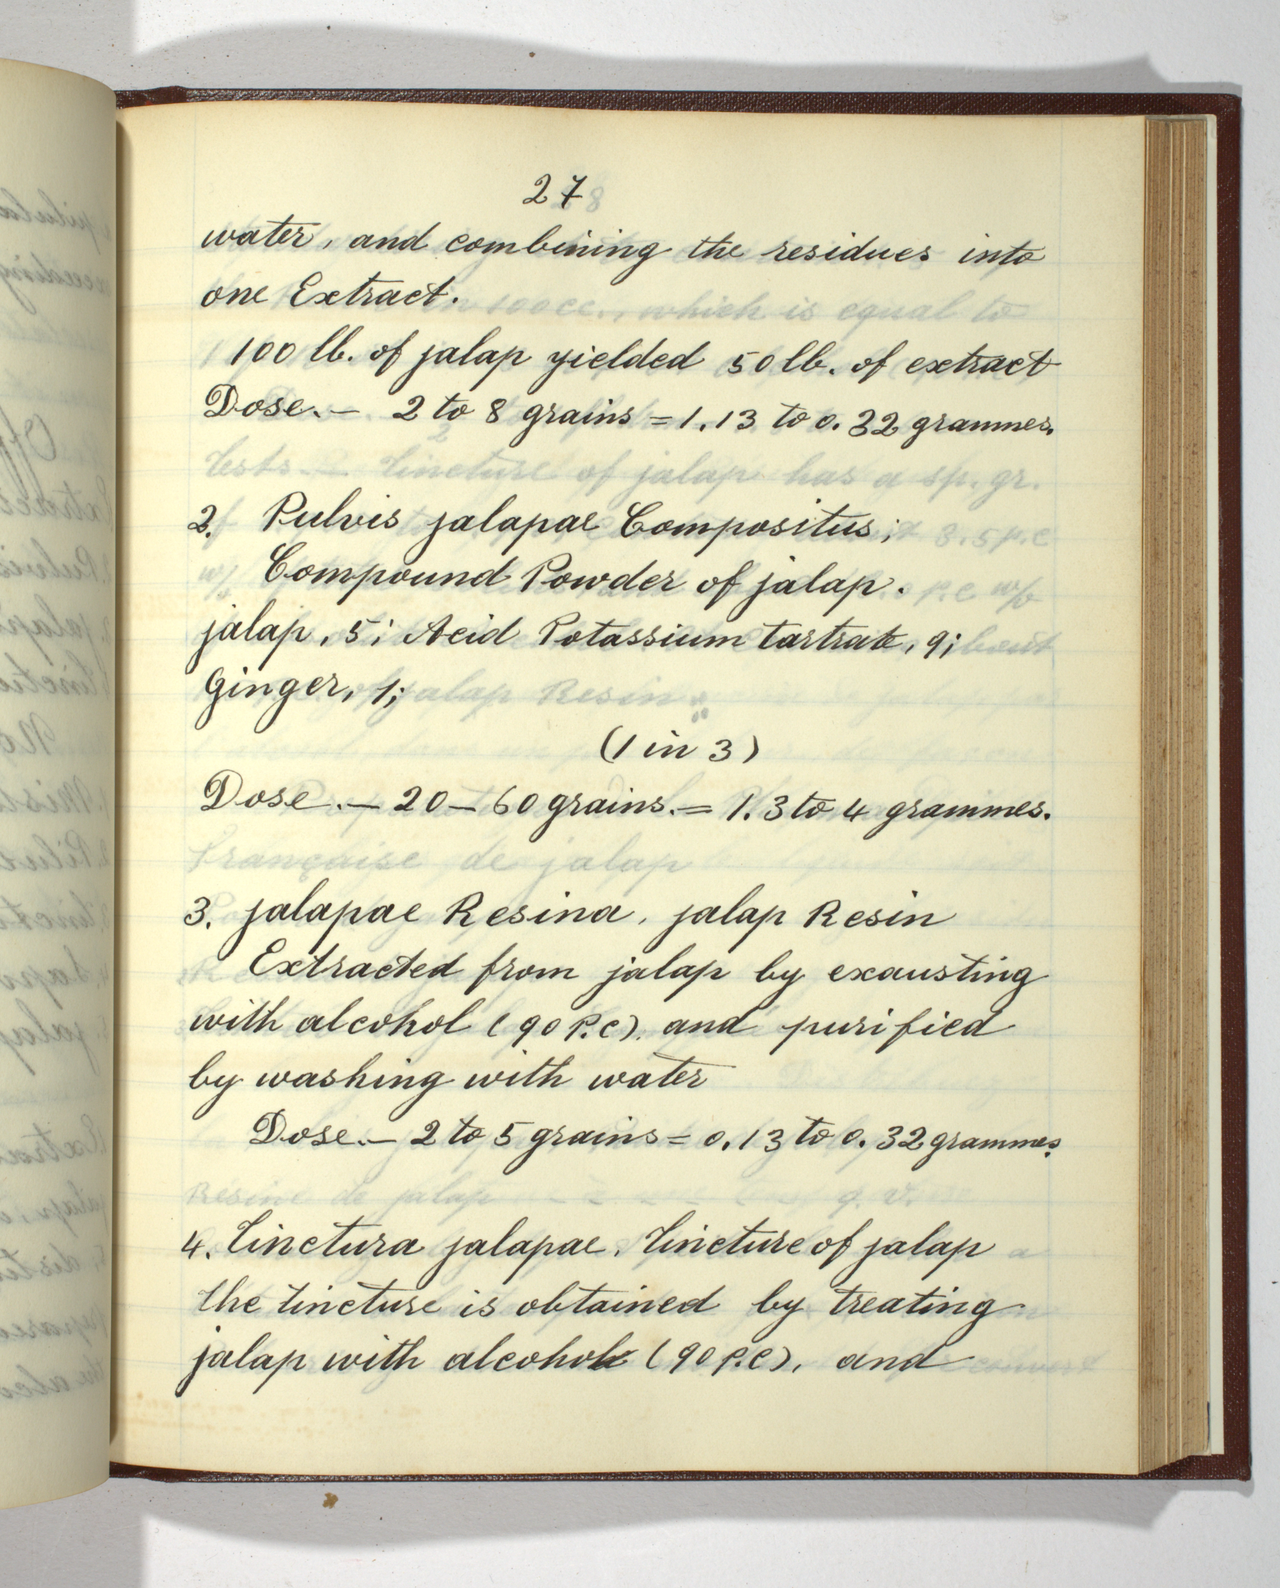 27
water, and combining the residues into
one Extract.
100 lb. of jalap yielded 50 lb. of extract
Dose.— 2 to 8 grains = 1.13 to 0.32 grammes.
2. Pulvis jalapae Compositus;
Compound Powder of jalap.
jalap, 5; Acid Potassium tartrate, 9;
Ginger, 1;
(1 in 3)
Dose.— 20—60 grains.= 1.3 to 4 grammes.
3. jalapae Resina, jalap Resin
Extracted from jalap by exausting
with alcohol (90 P.C). and purified
by washing with water
Dose.— 2 to 5 grains = 0.13 to 0.32 grammes.
4. Tinctura jalapae. Tincture of jalap
the tincture is obtained by treating
jalap with alcohol (90 P.C), and